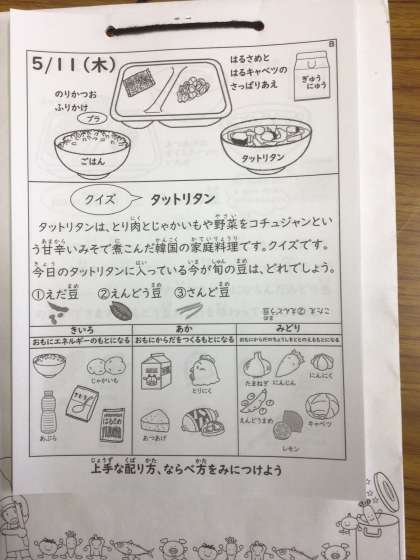 B
5/11(木)
はるさめと
はるキャベツの
さっぱりあえ
ぎゅう
にゅう
のりかつお
ふりかけ
プラ
ごはん
タットリタン
クイズ タットリタン
タットリタンは、とり肉とじゃがいもや野菜をコチュジャンとい
う甘辛いみそで煮こんだ韓国の家庭料理です。クイズです。
今日のタットリタンに入っている今が旬の豆は、どれでしょう。
①えだ豆 ②えんどう豆 ③さんど豆
こたえ ②えんどう豆
きいろ あか みどり
おもにエネルギーのもとになる おもにからだをつくるもとになる おもにからだのちょうしをととのえるもとになる
じゃがいも
とりにく
たまねぎ
にんじん
にんにく
はるさめ
あぶら
あつあげ
えんどうまめ
キャベツ
レモン
上手な配り方、ならべ方をみにつけよう